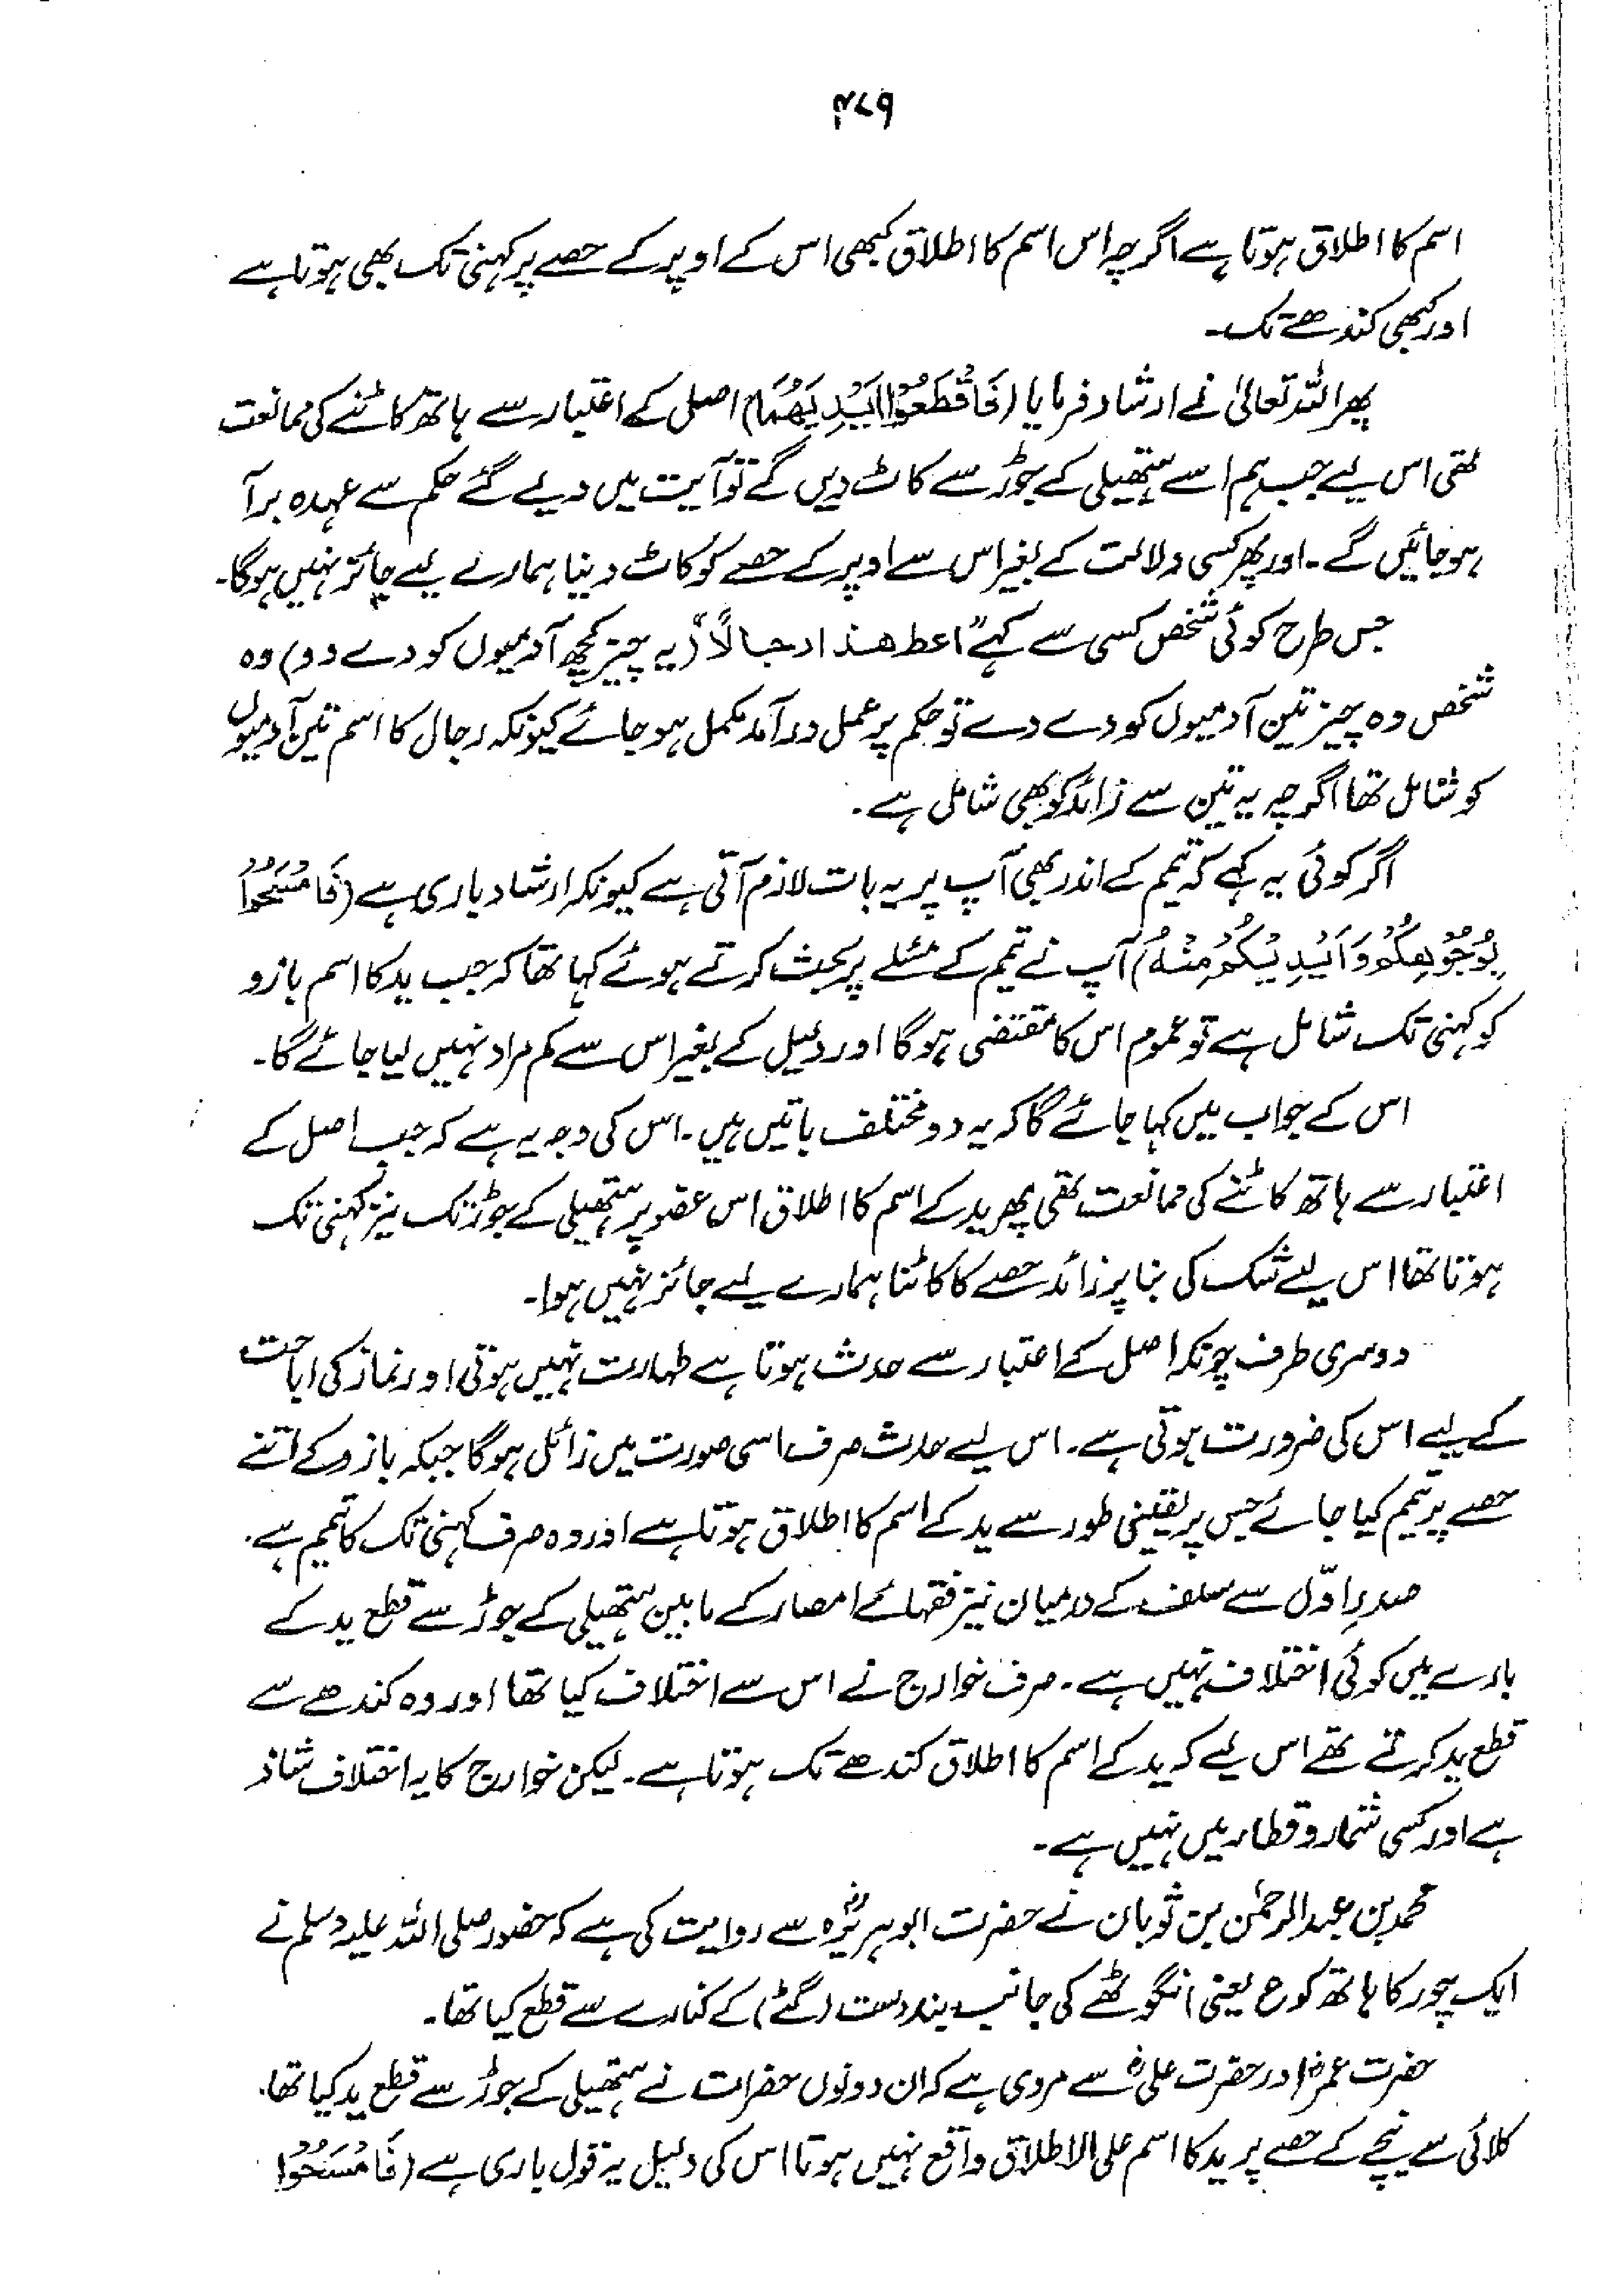 ۴۷۹
اسم کا اطلاق ہوتا ہے اگرچہ اس اسم کا اطلاق کبھی اس کے اوپر کے حصے پر کہنی تک بھی ہوتا ہے
اور کبھی کندھے تک۔
پھر اللہ تعالیٰ نے ارشاد فرمایا (فَاقْطَعُوْا اَیْدِیَھُمَا) اصل کے اعتبار سے ہاتھ کاٹنے کی ممانعت
تھی اس لیے جب ہم اسے ہتھیلی کے جوڑ سے کاٹ دیں گے تو آیت میں دیے گئے حکم سے عہدہ برآ
ہو جائیں گے۔ اور پھر کسی دلالت کے بغیر اس سے اوپر کے حصے کو کاٹ دینا ہمارے لیے جائز نہیں ہوگا۔
جس طرح کوئی شخص کسی سے کہے "اعط ھذا رجالاً" (یہ چیز کچھ آدمیوں کو دے دو) وہ
شخص وہ چیز تین آدمیوں کو دے دے تو حکم پر عمل درآمد مکمل ہو جائے کیونکہ رجال کا اسم تین آدمیوں
کو شامل تھا اگرچہ یہ تین سے زائد کو بھی شامل ہے۔
اگر کوئی یہ کہے کہ تیمم کے اندر بھی آپ پر یہ بات لازم آتی ہے کیونکہ ارشاد باری ہے (فَامْسَحُوْا
بِوُجُوْھِکُمْ وَاَیْدِیْکُمْ مِنْہُ) آپ نے تیمم کے مسئلے پر بحث کرتے ہوئے کہا تھا کہ جب ید کا اسم بازو
کو کہنی تک شامل ہے تو عموم اس کا مقتضی ہوگا اور دلیل کے بغیر اس سے کم مراد نہیں لیا جائے گا۔
اس کے جواب میں کہا جائے گا کہ یہ دو مختلف باتیں ہیں۔ اس کی وجہ یہ ہے کہ جب اصل کے
اعتبار سے ہاتھ کاٹنے کی ممانعت تھی پھر ید کے اسم کا اطلاق اس عضو پر ہتھیلی کے جوڑ تک نیز کہنی تک
ہوتا تھا اس لیے شک کی بنا پر زائد حصے کا کاٹنا ہمارے لیے جائز نہیں ہوا۔
دوسری طرف چونکہ اصل کے اعتبار سے حدث ہوتا ہے طہارت نہیں ہوتی اور نماز کی اباحت
کے لیے اس کی ضرورت ہوتی ہے۔ اس لیے حدث صرف اسی صورت میں زائل ہوگا جبکہ بازو کے اتنے
حصے پر تیمم کیا جائے جس پر یقینی طور سے ید کے اسم کا اطلاق ہوتا ہے اور وہ صرف کہنی تک کا تیمم ہے۔
صدرِ اوّل سے سلف کے درمیان نیز فقہائے امصار کے مابین ہتھیلی کے جوڑ سے قطع ید کے
بارے میں کوئی اختلاف نہیں ہے۔ صرف خوارج نے اس سے اختلاف کیا تھا اور وہ کندھے سے
قطع ید کرتے تھے اس لیے کہ ید کے اسم کا اطلاق کندھے تک ہوتا ہے۔ لیکن خوارج کا یہ اختلاف شاذ
ہے اور کسی شمار و قطار میں نہیں ہے۔
محمد بن عبدالرحمٰن بن ثوبان نے حضرت ابوہریرہؓ سے روایت کی ہے کہ حضور صلی اللہ علیہ وسلم نے
ایک چور کا ہاتھ کوع یعنی انگوٹھے کی جانب بند دست (گٹے) کے کنارے سے قطع کیا تھا۔
حضرت عمرؓ اور حضرت علیؓ سے مروی ہے کہ ان دونوں حضرات نے ہتھیلی کے جوڑ سے قطع ید کیا تھا۔
کلائی سے نیچے کے حصے پر ید کا اسم علی الاطلاق واقع نہیں ہوتا اس کی دلیل یہ قول باری ہے (فَامْسَحُوْا